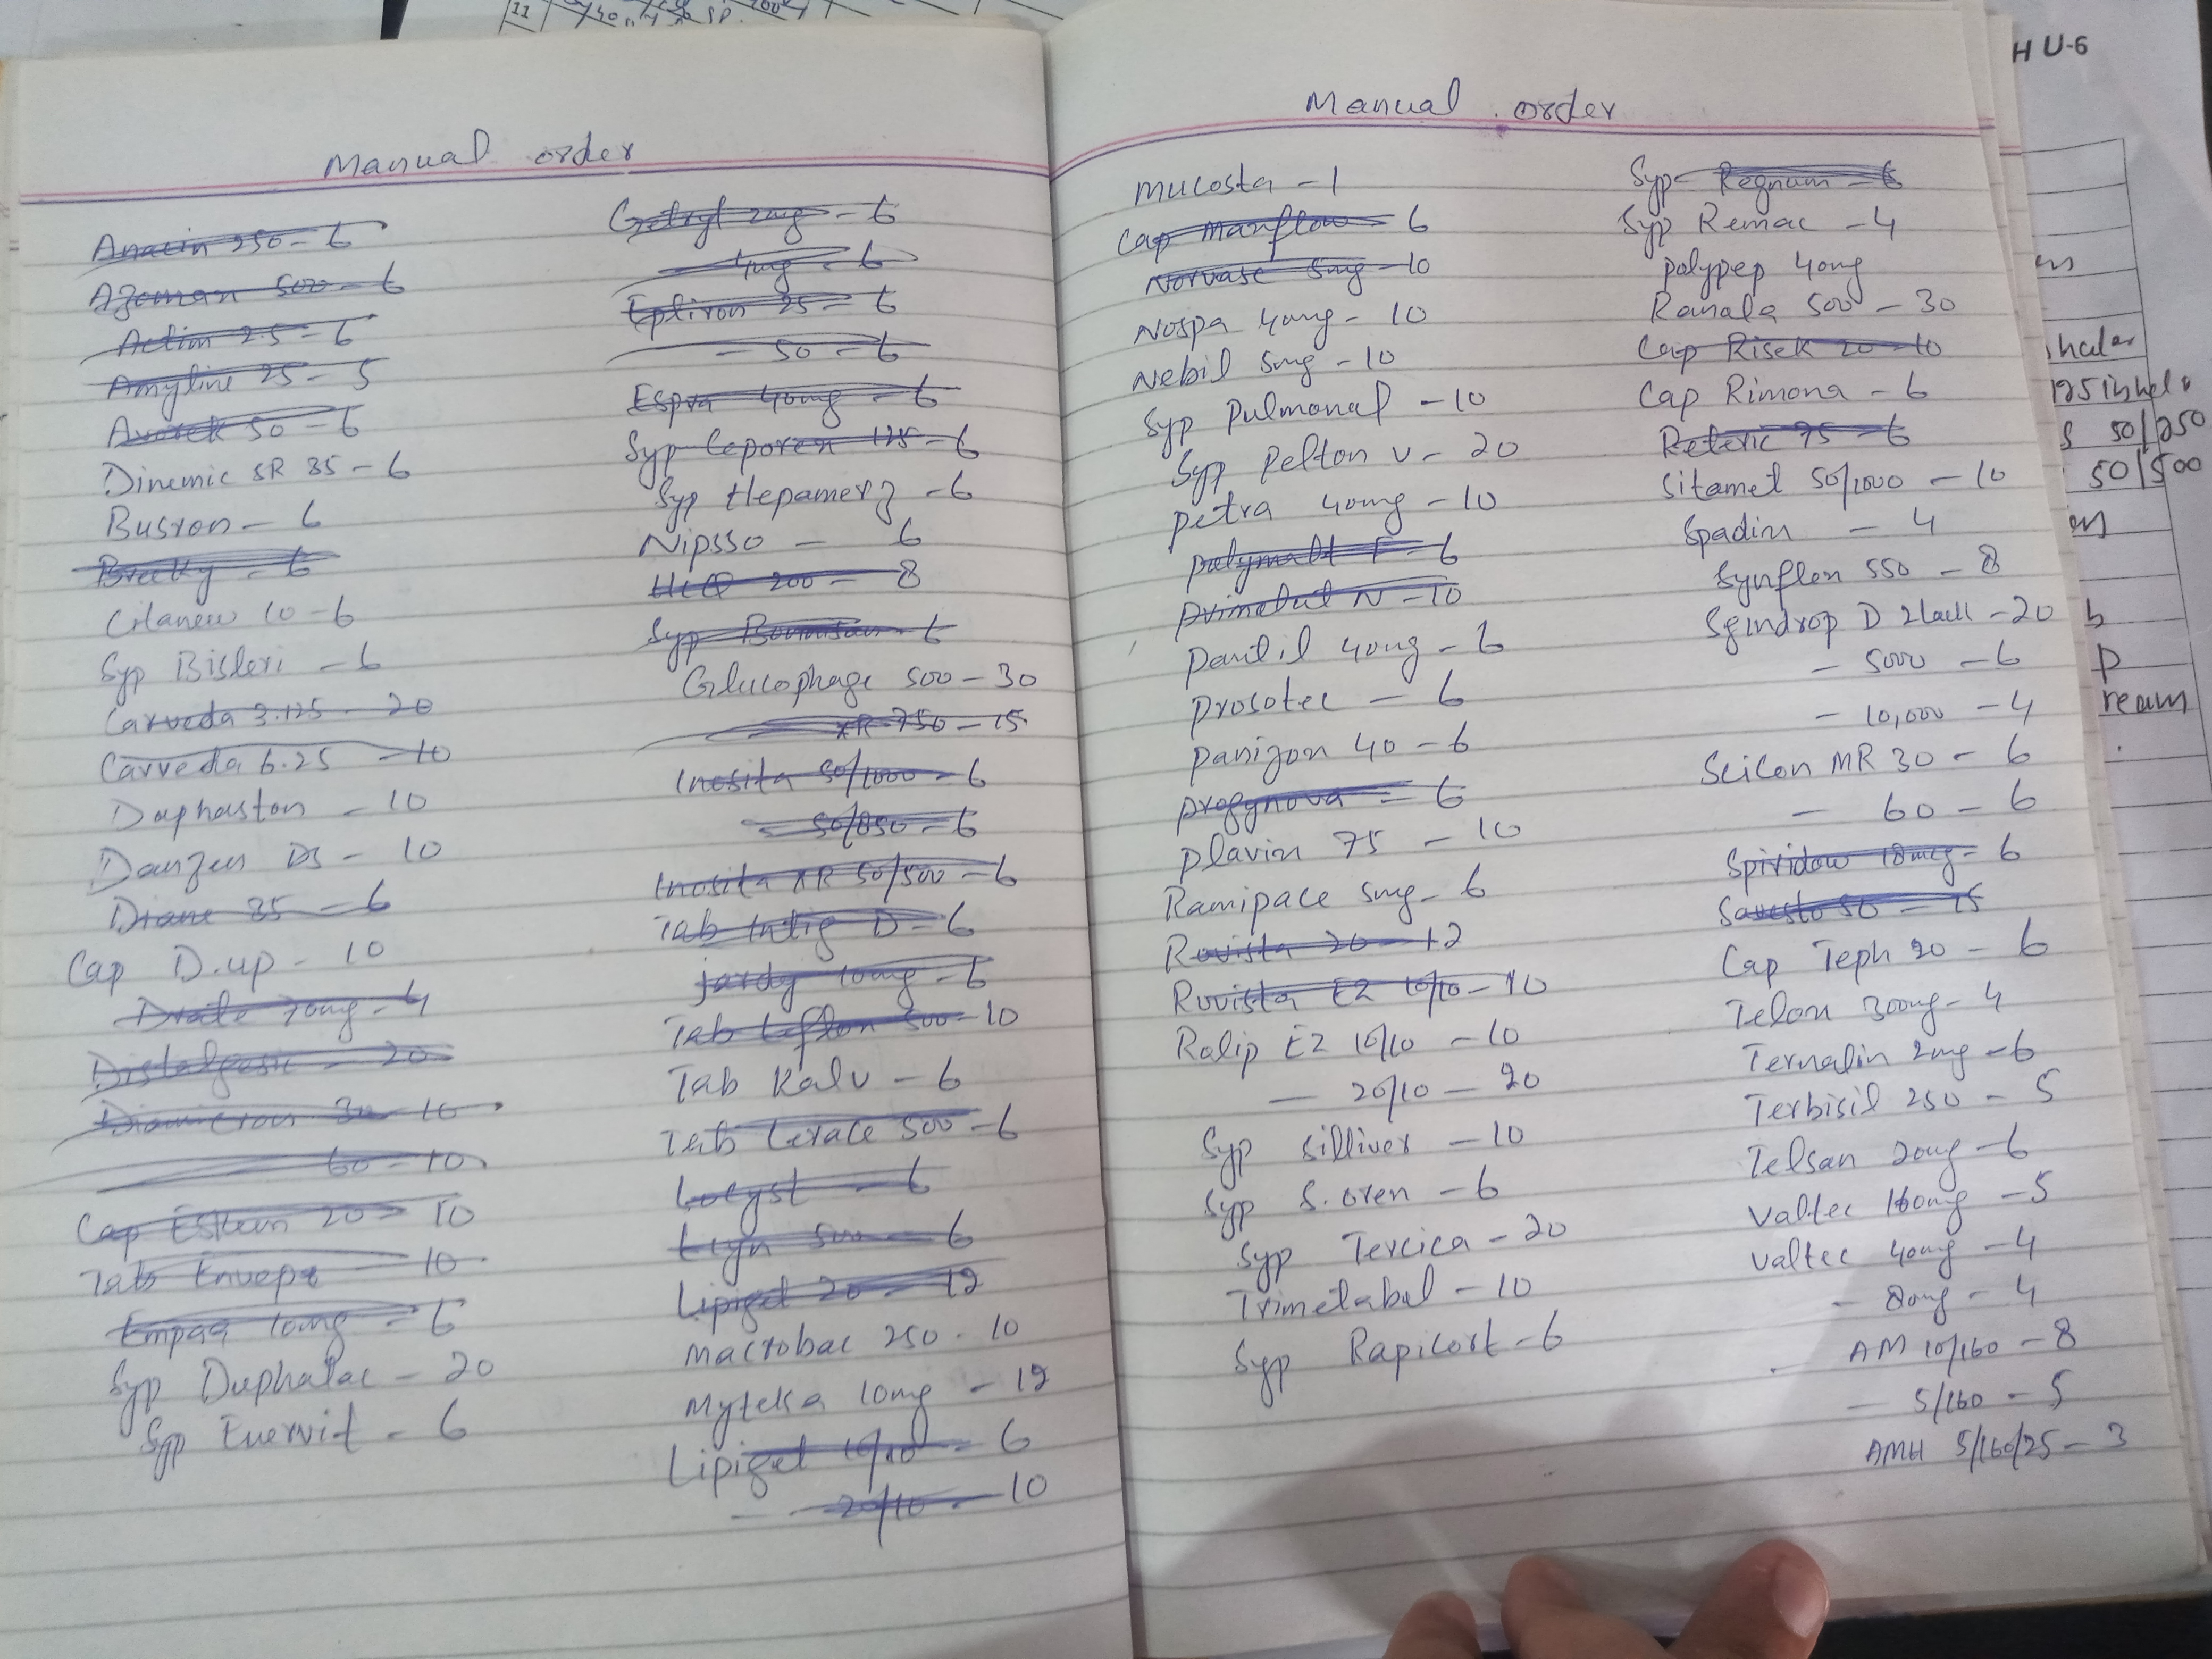 Manual order
Anacin 250 - 6
Azomax 500 - 6
Actim 2.5 - 6
Amyline 25 - 5
Avorek 50 - 6
Dinemic SR 35 - 6
Busron - 6
Breeky - 6
Citanew 10 - 6
Syp Bisleri - 6
Carveda 3.125 - 20
Carveda 6.25 - 10
Duphaston - 10
Danzen DS - 10
Diane 35 - 6
Cap D.up - 10
Drate 70mg - 4
Distalgesic - 20
Diamicron 30 - 10
60 - 10
Cap Esteem 20 - 10
Tab Envepe - 10
Empaa 10mg - 6
Syp Duphalac - 20
Syp Enervit - 6
Getryl 2mg - 6
4mg - 6
Eptiron 25 - 6
- 50 - 6
Espra 40mg - 6
Syp Ceporex 125 - 6
Syp Hepamerz - 6
Nipsso - 6
HCQ 200 - 8
Syp Bonnisan - 6
Glucophage 500 - 30
XR 750 - 15
Inosita 50/1000 - 6
50/850 - 6
Inosita XR 50/500 - 6
Tab Intig D - 6
Jardy 10mg - 6
Tab Leflox 500 - 10
Tab Kalv - 6
Tab Lerace 500 - 6
Locyst - 6
500 - 6
Lipiget 20 - 12
Macrobac 250 - 10
Myteka 10mg - 12
Lipiget 10/10 - 6
- 20/10 - 10
Manual order
Mucosta - 1
Cap Maxflow - 6
Norvasc 5mg - 10
Nospa 40mg - 10
Nebil 5mg - 10
Syp Pulmonal - 10
Syp Pelton V - 20
Petra 40mg - 10
Polymalt F - 6
Primolut N - 10
Pantil 40mg - 6
Prosotec - 6
Panizon 40 - 6
Progynova - 6
Plavin 75 - 10
Ramipace 5mg - 6
Rovista 20 - 12
Rovista EZ 10/10 - 10
Ralip EZ 10/10 - 10
- 20/10 - 20
Syp Silliver - 10
Syp S.oren - 6
Syp Tercica - 20
Trimetabol - 10
Syp Rapicort - 6
Syp Regnum - 6
Syp Remac - 4
Polypep 40mg
Ranola 500 - 30
Cap Risek 20 - 10
Cap Rimona - 6
Reteric 75 - 6
Sitamet 50/1000 - 10
Spadin - 4
Synflex 550 - 8
D - 20
- 5000 - 6
- 10,000 - 4
Scilon MR 30 - 6
- 60 - 6
Spiridow 18mcg - 6
Savesto 50 - 15
Cap Teph 20 - 6
Telon 300mg - 4
Ternalin 2mg - 6
Terbisil 250 - 5
Telsan 20mg - 6
Valtec 160mg - 5
Valtec 40mg - 4
- 80mg - 4
- AM 10/160 - 8
- 5/160 - 5
AMH 5/160/25 - 3
H U-6
50/250
50/500
ream